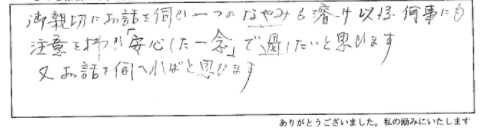 御親切にお話を伺い一つのなやみも溶け以後何事にも
注意を持つ「安心した一念」で過したいと思ひます
又お話を伺へればと思ひます
ありがとうございました。私の励みにいたします